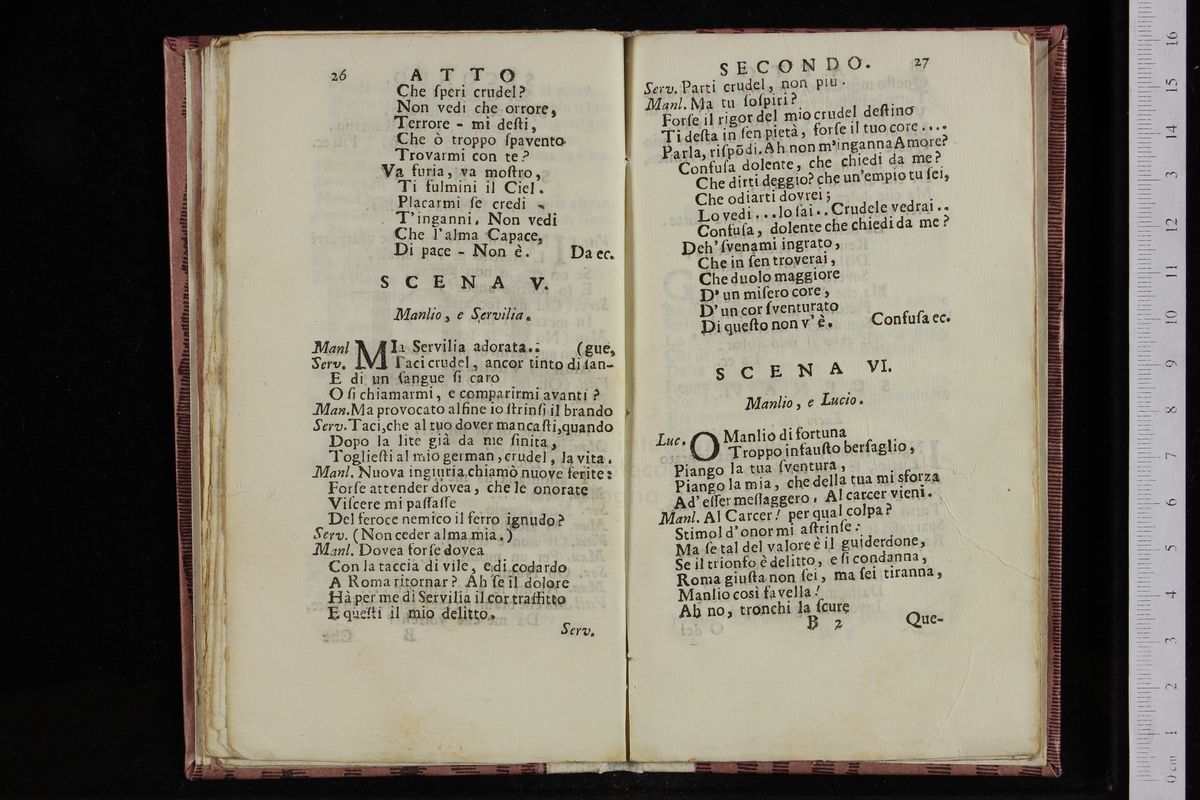 26 ATTO
Che ſperi crudel?
Non vedi che orrore,
Terrore - mi deſti,
Che ò troppo ſpavento
Trovarmi con te?
Va furia, va moſtro,
Ti fulmini il Ciel.
Placarmi ſe credi
T'inganni. Non vedi
Che l'alma Capace,
Di pace - Non è. Da ec.
SCENA V.
Manlio, e Servilia.
Manl MIa Servilia adorata.. (gue,
Serv. Taci crudel, ancor tinto di ſan-
E di un ſangue ſi caro
O ſi chiamarmi, e comparirmi avanti?
Man. Ma provocato alfine io ſtrinſi il brando
Serv. Taci, che al tuo dover mancaſti, quando
Dopo la lite già da me finita,
Toglieſti al mio german, crudel, la vita.
Manl. Nuova ingiuria chiamò nuove ferite:
Forſe attender dovea, che le onorate
Viſcere mi paſſaſſe
Del feroce nemico il ferro ignudo?
Serv. (Non ceder alma mia.)
Manl. Dovea forſe dovea
Con la taccia di vile, e di codardo
A Roma ritornar? Ah ſe il dolore
Hà per me di Servilia il cor traffitto
E queſti il mio delitto.
Serv.
SECONDO. 27
Serv. Parti crudel, non piu.
Manl. Ma tu ſoſpiri?
Forſe il rigor del mio crudel deſtino
Ti deſta in ſen pietà, forſe il tuo core....
Parla, riſpõdi. Ah non m'inganna Amore?
Confuſa dolente, che chiedi da me?
Che dirti deggio? che un'empio tu ſei,
Che odiarti dovrei;
Lo vedi... lo ſai.. Crudele vedrai..
Confuſa, dolente che chiedi da me?
Deh' ſvenami ingrato,
Che in ſen troverai,
Che duolo maggiore
D' un miſero core,
D' un cor ſventurato
Di queſto non v' è. Confuſa ec.
SCENA VI.
Manlio, e Lucio.
Luc. O Manlio di fortuna
Troppo infauſto berſaglio,
Piango la tua ſventura,
Piango la mia, che della tua mi sforza
Ad' eſſer meſſaggero. Al carcer vieni.
Manl. Al Carcer! per qual colpa?
Stimol d'onor mi aſtrinſe:
Ma ſe tal del valore è il guiderdone,
Se il trionfo è delitto, e ſi condanna,
Roma giuſta non ſei, ma ſei tiranna,
Manlio così favella!
Ah no, tronchi la ſcure
B 2 Que-
0 cm 1 2 3 4 5 6 7 8 9 10 11 12 13 14 15 16